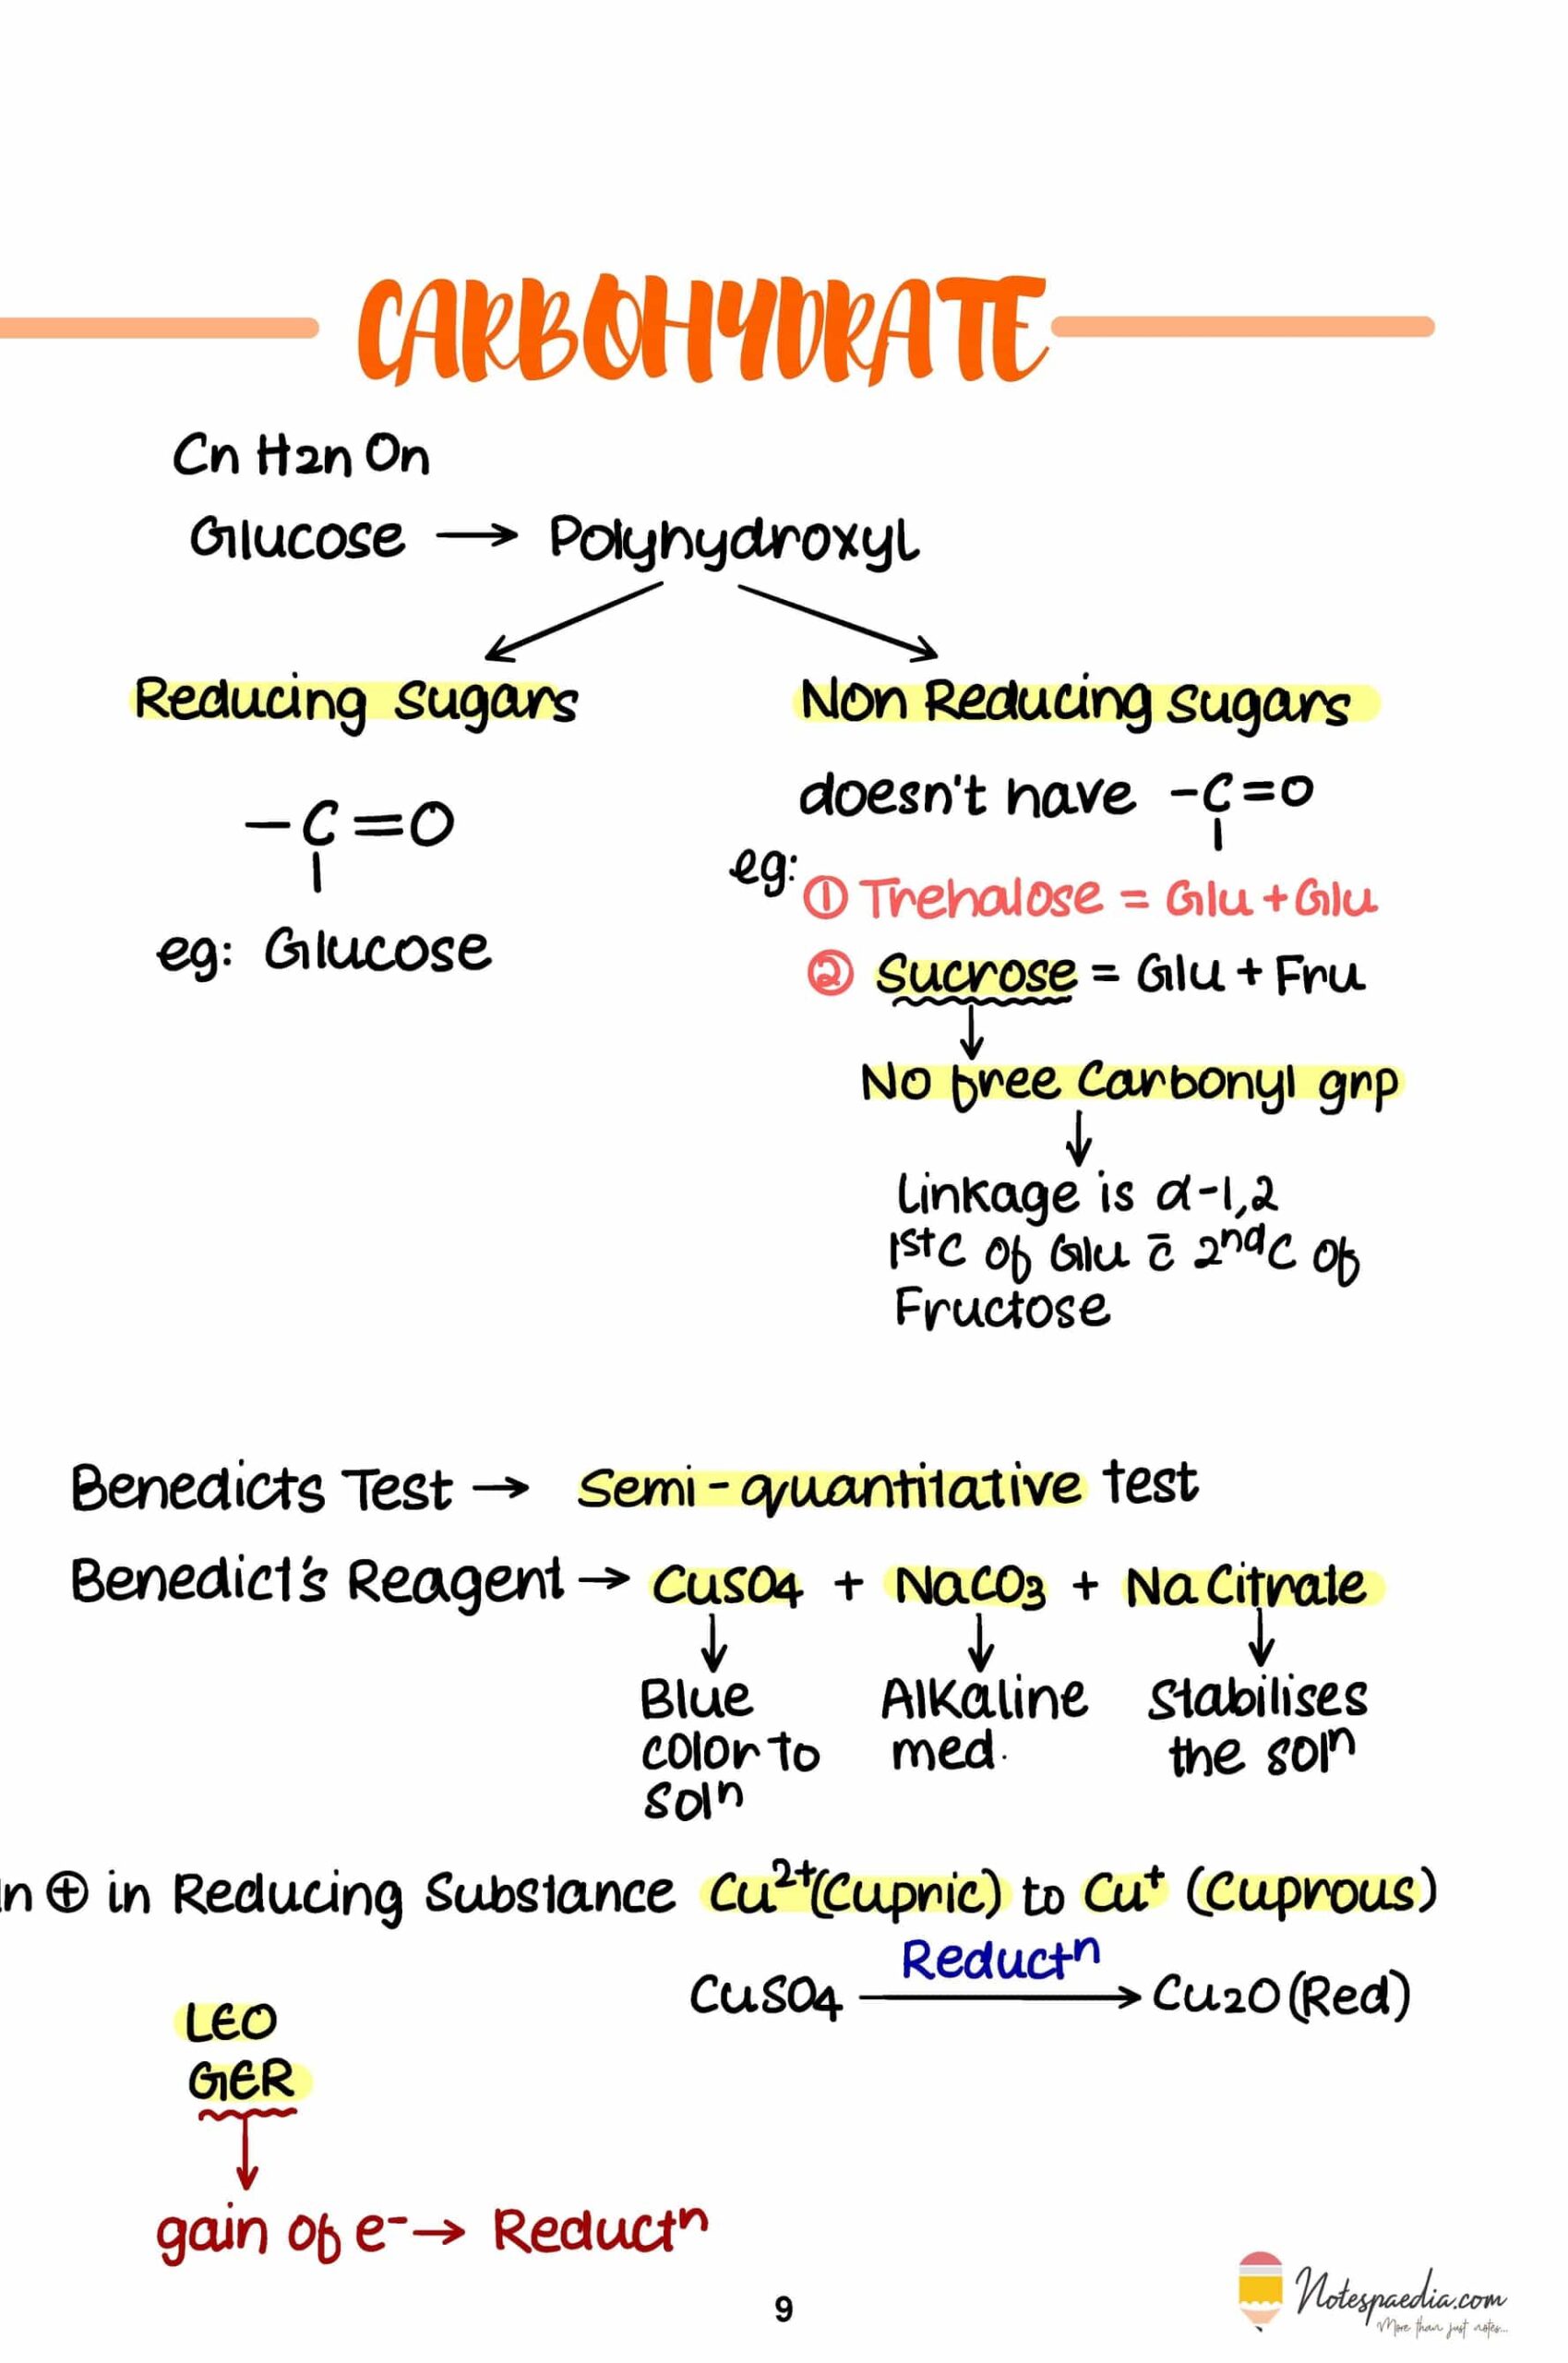 CARBOHYDRATE
Cn H2n On
Glucose → Polyhydroxyl
Reducing Sugars
Non Reducing Sugars
-C=O
eg: Glucose
doesn't have -C=O
eg:
① Trehalose = Glu + Glu
② Sucrose = Glu + Fru
↓
No free Carbonyl grp
↓
Linkage is α-1,2
1st C of Glu c̄ 2nd C of
Fructose
Benedicts Test → Semi-quantitative test
Benedict's Reagent → CuSO4 + NaCO3 + Na Citrate
Blue color to soln
Alkaline med.
Stabilises the soln
n ⊕ in Reducing Substance Cu2+(Cupric) to Cu+ (Cuprous)
Reductn
CuSO4 → Cu2O (Red)
LEO
GER
gain of e- → Reductn
9
Notespaedia.com
More than just notes...